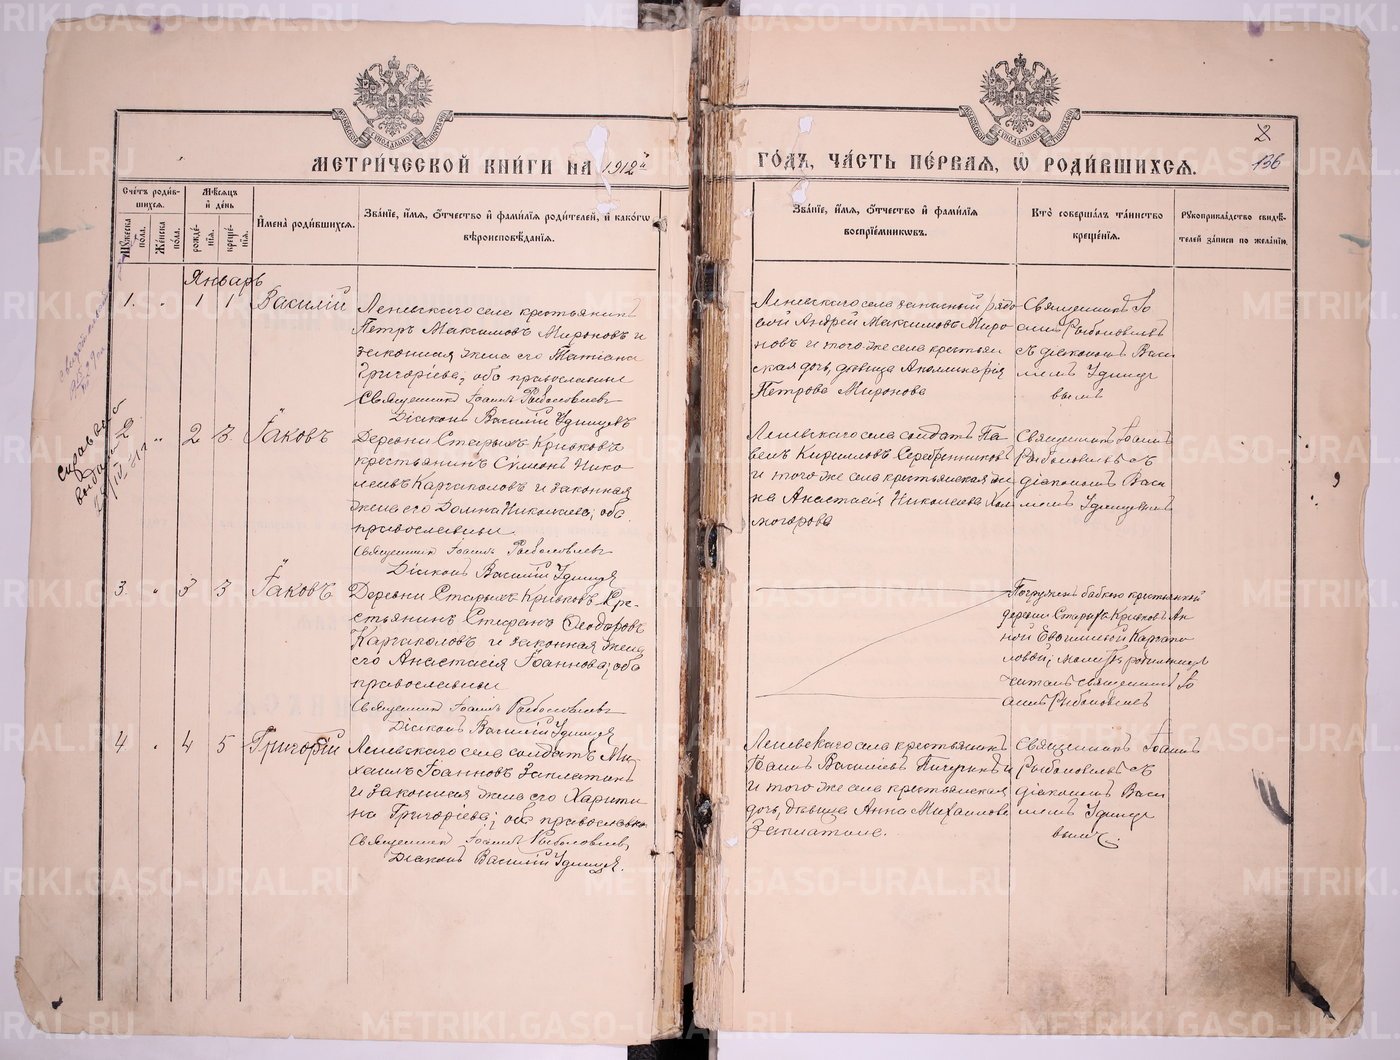 МЕТРИ́ЧЕСКОЙ КНИ́ГИ НА 1912й
ГО́ДЪ, ЧА́СТЬ ПЕ́РВАЯ, Ѡ РОДИ́ВШИХСЯ.
2
136
Сче́тъ роди́в-
шихся.
Му́жеска
по́ла.
Же́нска
по́ла.
Мѣ́сяцъ
и҆ де́нь
рожде́-
нїя.
креще́-
нїя.
И҆мена̀ роди́вшихся.
Зва́нїе, и҆́мя, ѻ҆́тчество и҆ фами́лїя роди́телей, и҆ како́гѡ
вѣроисповѣ́данїя.
Зва́нїе, и҆́мя, ѻ҆́тчество и҆ фами́лїя
воспрїе́мниковъ.
Кто̀ соверша́лъ та́инство
креще́нїя.
Рꙋкоприкла́дство свидѣ́-
телей за́писи по жела́нїю.
Январь
1. " 1 1 Василій
Леневскаго села крестьянинъ
Петръ Максимовъ Мироновъ и
законная жена его Татіана
Григоріева; оба православные
Священникъ Іоаннъ Рыболовлевъ
Діаконъ Василій Удинцевъ
Леневскаго села запасный рядо
вой Андрей Максимовъ Миро
новъ и того-же села крестьян
ская дочь, дѣвица Аполлинарія
Петрова Миронова
Священникъ Іо
аннъ Рыболовлевъ
съ діакономъ Васи
ліемъ Удинце
вымъ
справка
выдана
2 " 2 3 Іаковъ
Деревни Старыхъ Кривковъ
крестьянинъ Сѵмеонъ Нико
лаевъ Каргаполовъ и законная
жена его Домна Николаева; оба
православные
Священникъ Іоаннъ Рыболовлевъ
Діаконъ Василій Удинцевъ
Леневскаго села солдатъ Па
велъ Кирилловъ Серебренниковъ
и того же села крестьянская же
на Анастасія Николаева Хол
могорова
Священникъ Іоаннъ
Рыболовлевъ съ
діакономъ Васи
ліемъ Удинцевымъ
3 " 3 3 Іаковъ
Деревни Старыхъ Кривковъ кре-
стьянинъ Стефанъ Ѳеодоровъ
Каргаполовъ и законная жена
его Анастасія Іоаннова; оба
православные
Священникъ Іоаннъ Рыболовлевъ
Діаконъ Василій Удинцевъ
Погруженъ бабкою крестьянкой
деревни Старыхъ Кривковъ Ан
ной Евѳиміевой Каргапо
ловой; молитв. родильницѣ
читалъ священникъ Іо
аннъ Рыболовлевъ
4 " 4 5 Григорій
Леневскаго села солдатъ Ми
хаилъ Іоанновъ Заплатинъ
и законная жена его Харити
на Григоріева; оба православные
Священникъ Іоаннъ Рыболовлевъ,
Діаконъ Василій Удинцевъ.
Леневскаго села крестьянинъ
Іоаннъ Василіевъ Пичугинъ и
и того же села крестьянская
дочь, дѣвица Анна Михаилова
Заплатина.
Священникъ Іоаннъ
Рыболовлевъ съ
діакономъ Васи
ліемъ Удинце
вымъ.
METRIKI.GASO-URAL.RU